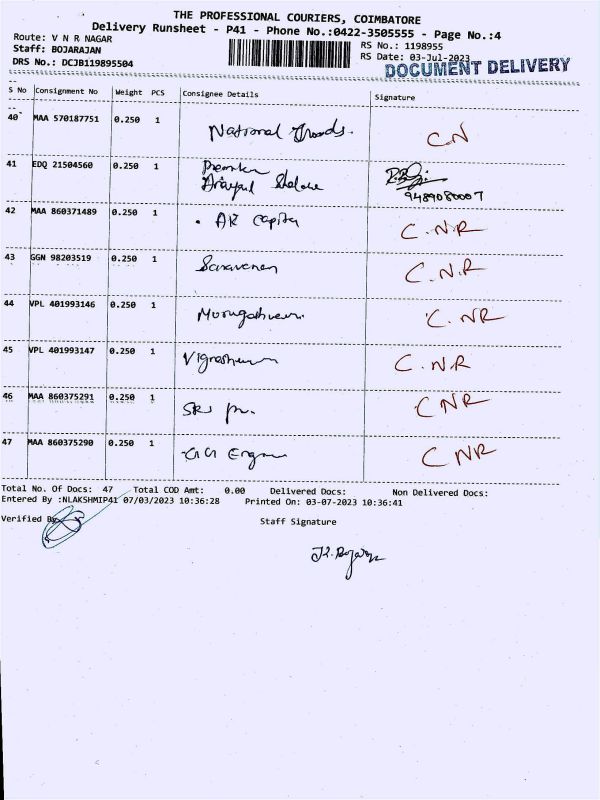 THE PROFESSIONAL COURIERS, COIMBATORE
Delivery Runsheet - P41 - Phone No.:0422-3505555 - Page No.:4
Route: V N R NAGAR
Staff: BOJARAJAN
DRS No.: DCJB119895504
RS No.: 1198955
RS Date: 03-Jul-2023
DOCUMENT DELIVERY
S No Consignment No Weight PCS Consignee Details Signature
40 MAA 570187751 0.250 1 National C.N
41 EDQ 21504560 0.250 1
9489080007
42 MAA 860371489 0.250 1 AR Capital C.N.R
43 GGN 98203519 0.250 1 Saravanan C.N.R
44 VPL 401993146 0.250 1 C.NR
45 VPL 401993147 0.250 1 C.NR
46 MAA 860375291 0.250 1 CNR
47 MAA 860375290 0.250 1 C NR
Total No. Of Docs: 47 Total COD Amt: 0.00 Delivered Docs: Non Delivered Docs:
Entered By :NLAKSHMIP41 07/03/2023 10:36:28 Printed On: 03-07-2023 10:36:41
Verified By Staff Signature